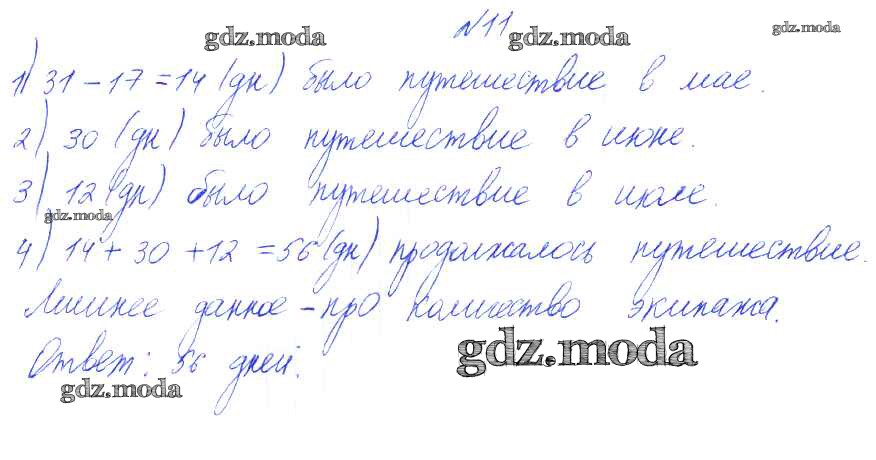 №11
gdz.moda gdz.moda gdz.moda
1) 31 - 17 = 14 (дн) было путешествие в мае.
2) 30 (дн) было путешествие в июне.
3) 12 (дн) было путешествие в июле.
gdz.moda
4) 14 + 30 + 12 = 56 (дн) продолжалось путешествие.
Лишнее данное - про количество экипажа.
gdz.moda
Ответ: 56 дней.
gdz.moda